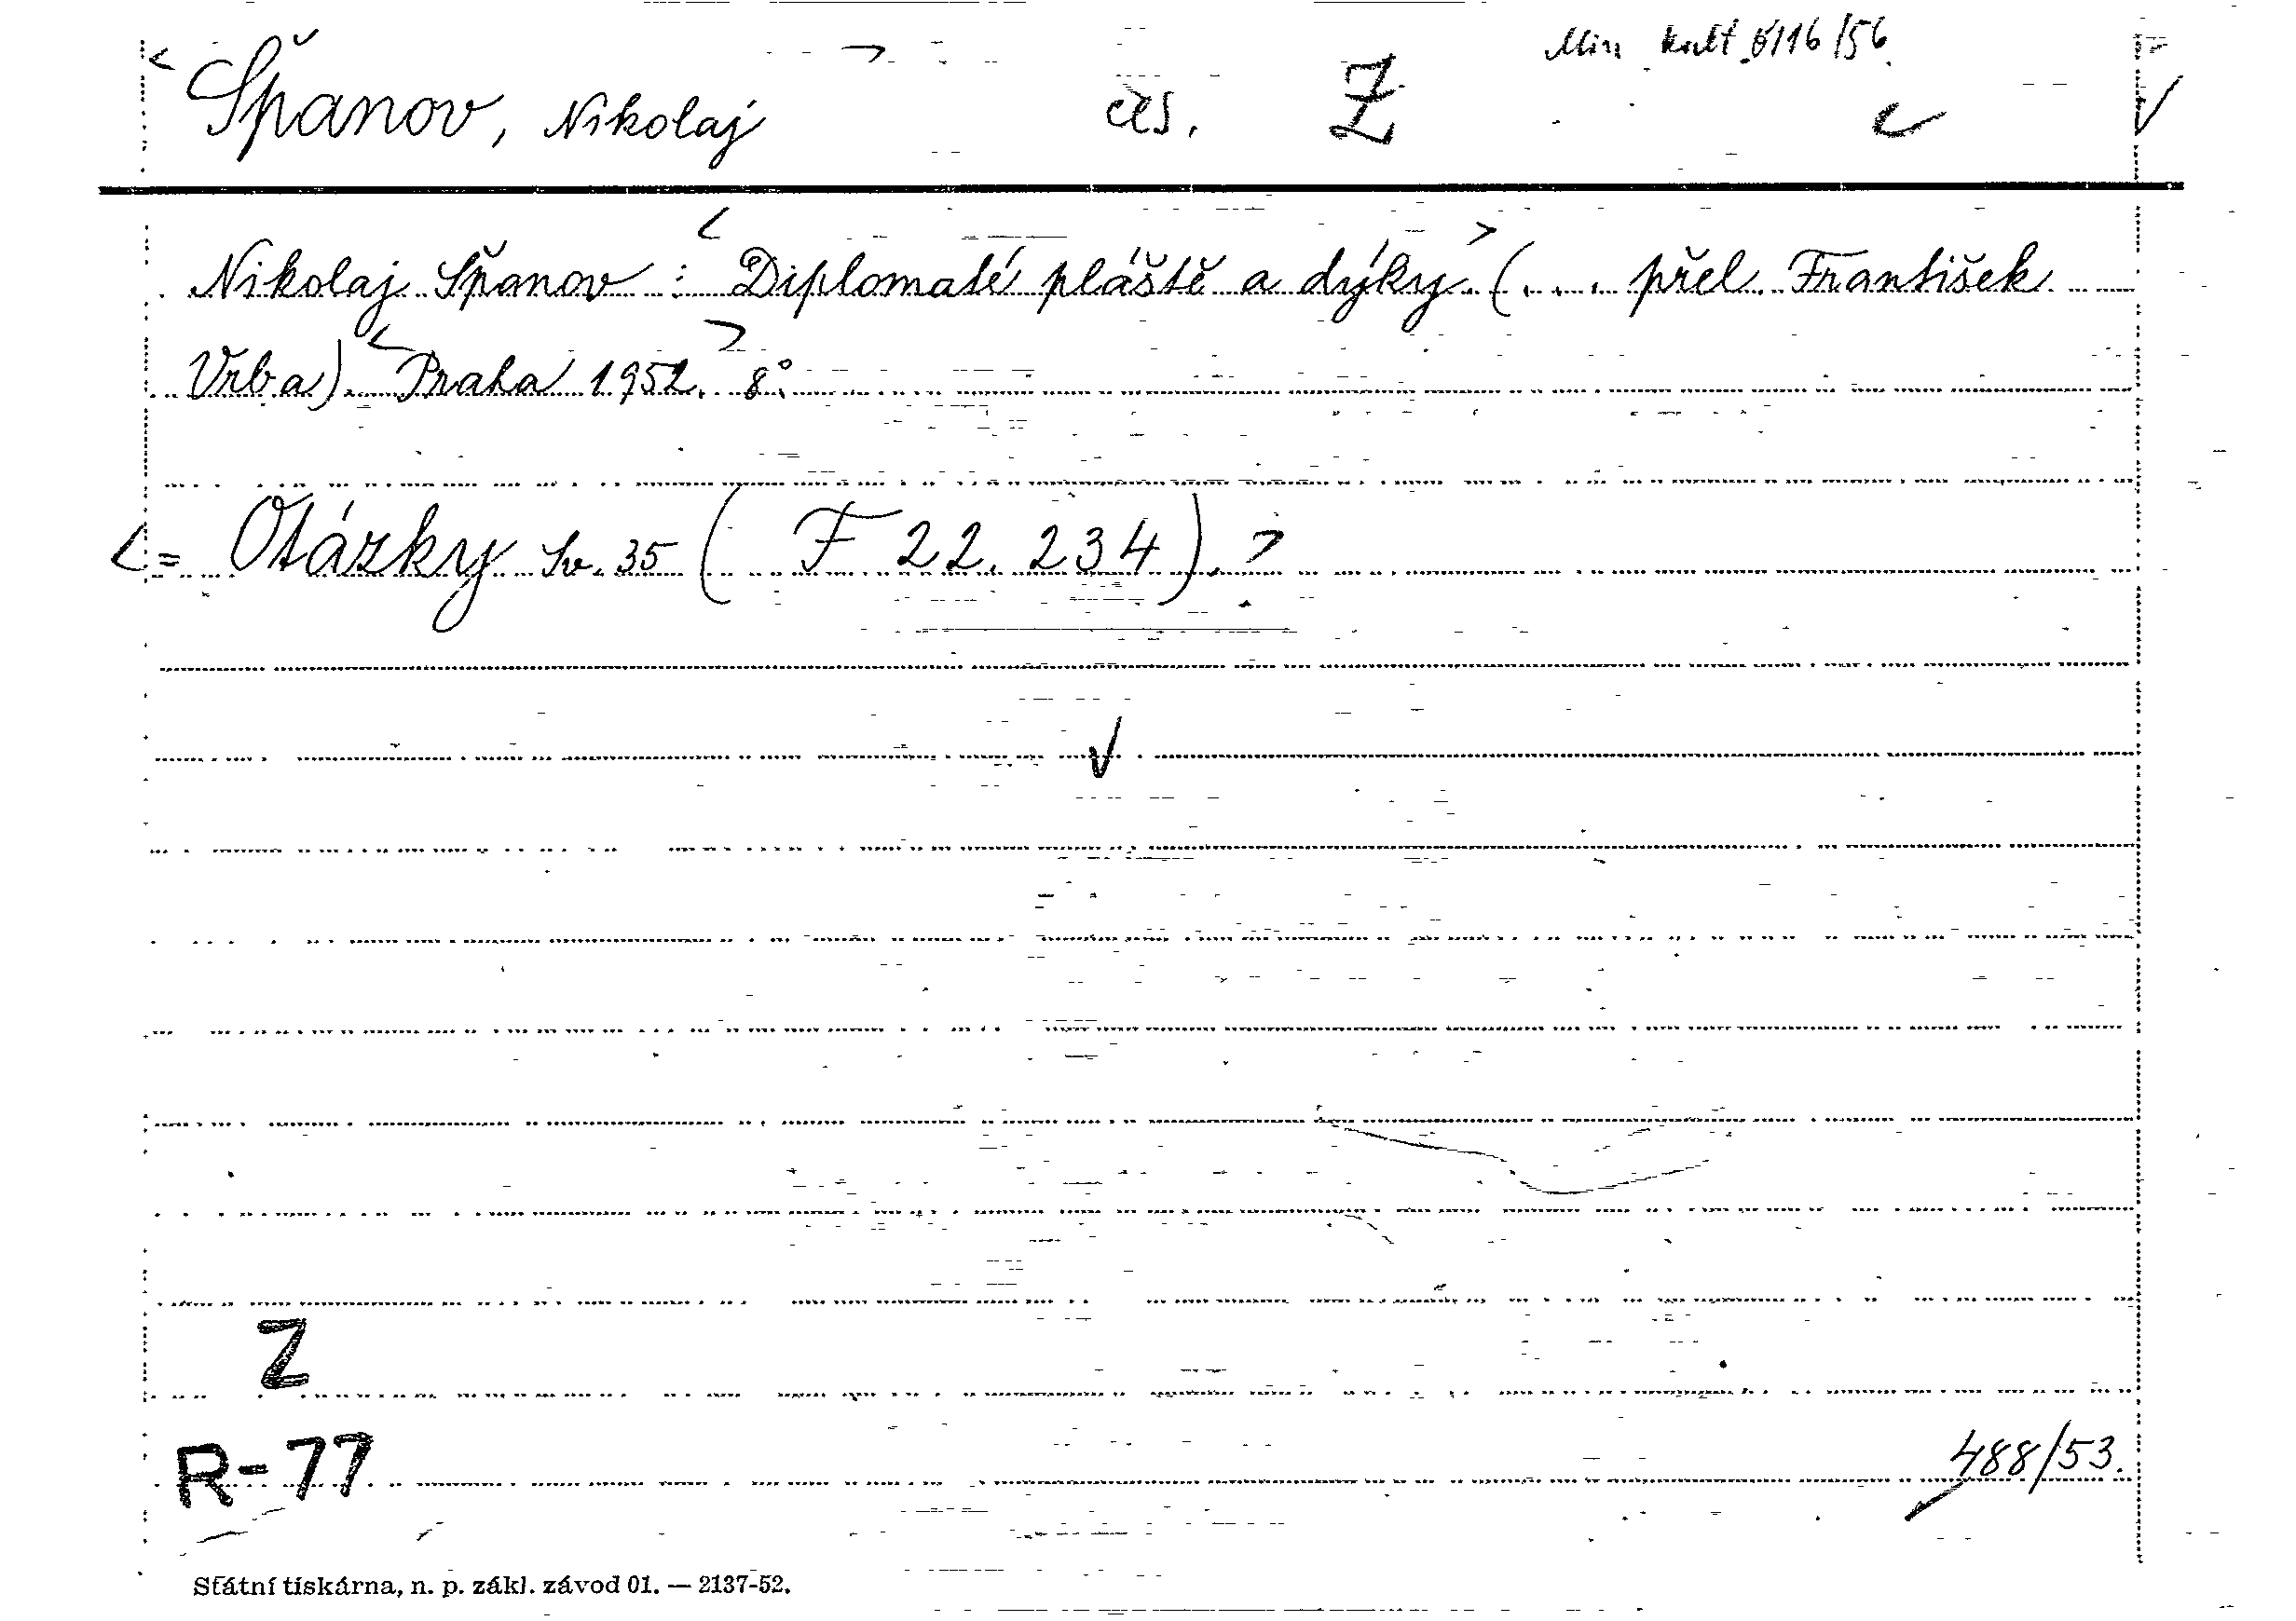 Min kult 5/116/56
Špaňov, Nikolaj čes. Z
Nikolaj Španov : Diplomaté pláště a dýky (... přel. František
Vrba). Praha 1952. 8°.
= Otázky sv. 35 ( F 22.234).
Z
R-77
488/53.
Státní tiskárna, n. p. zákl. závod 01. — 2137-52.